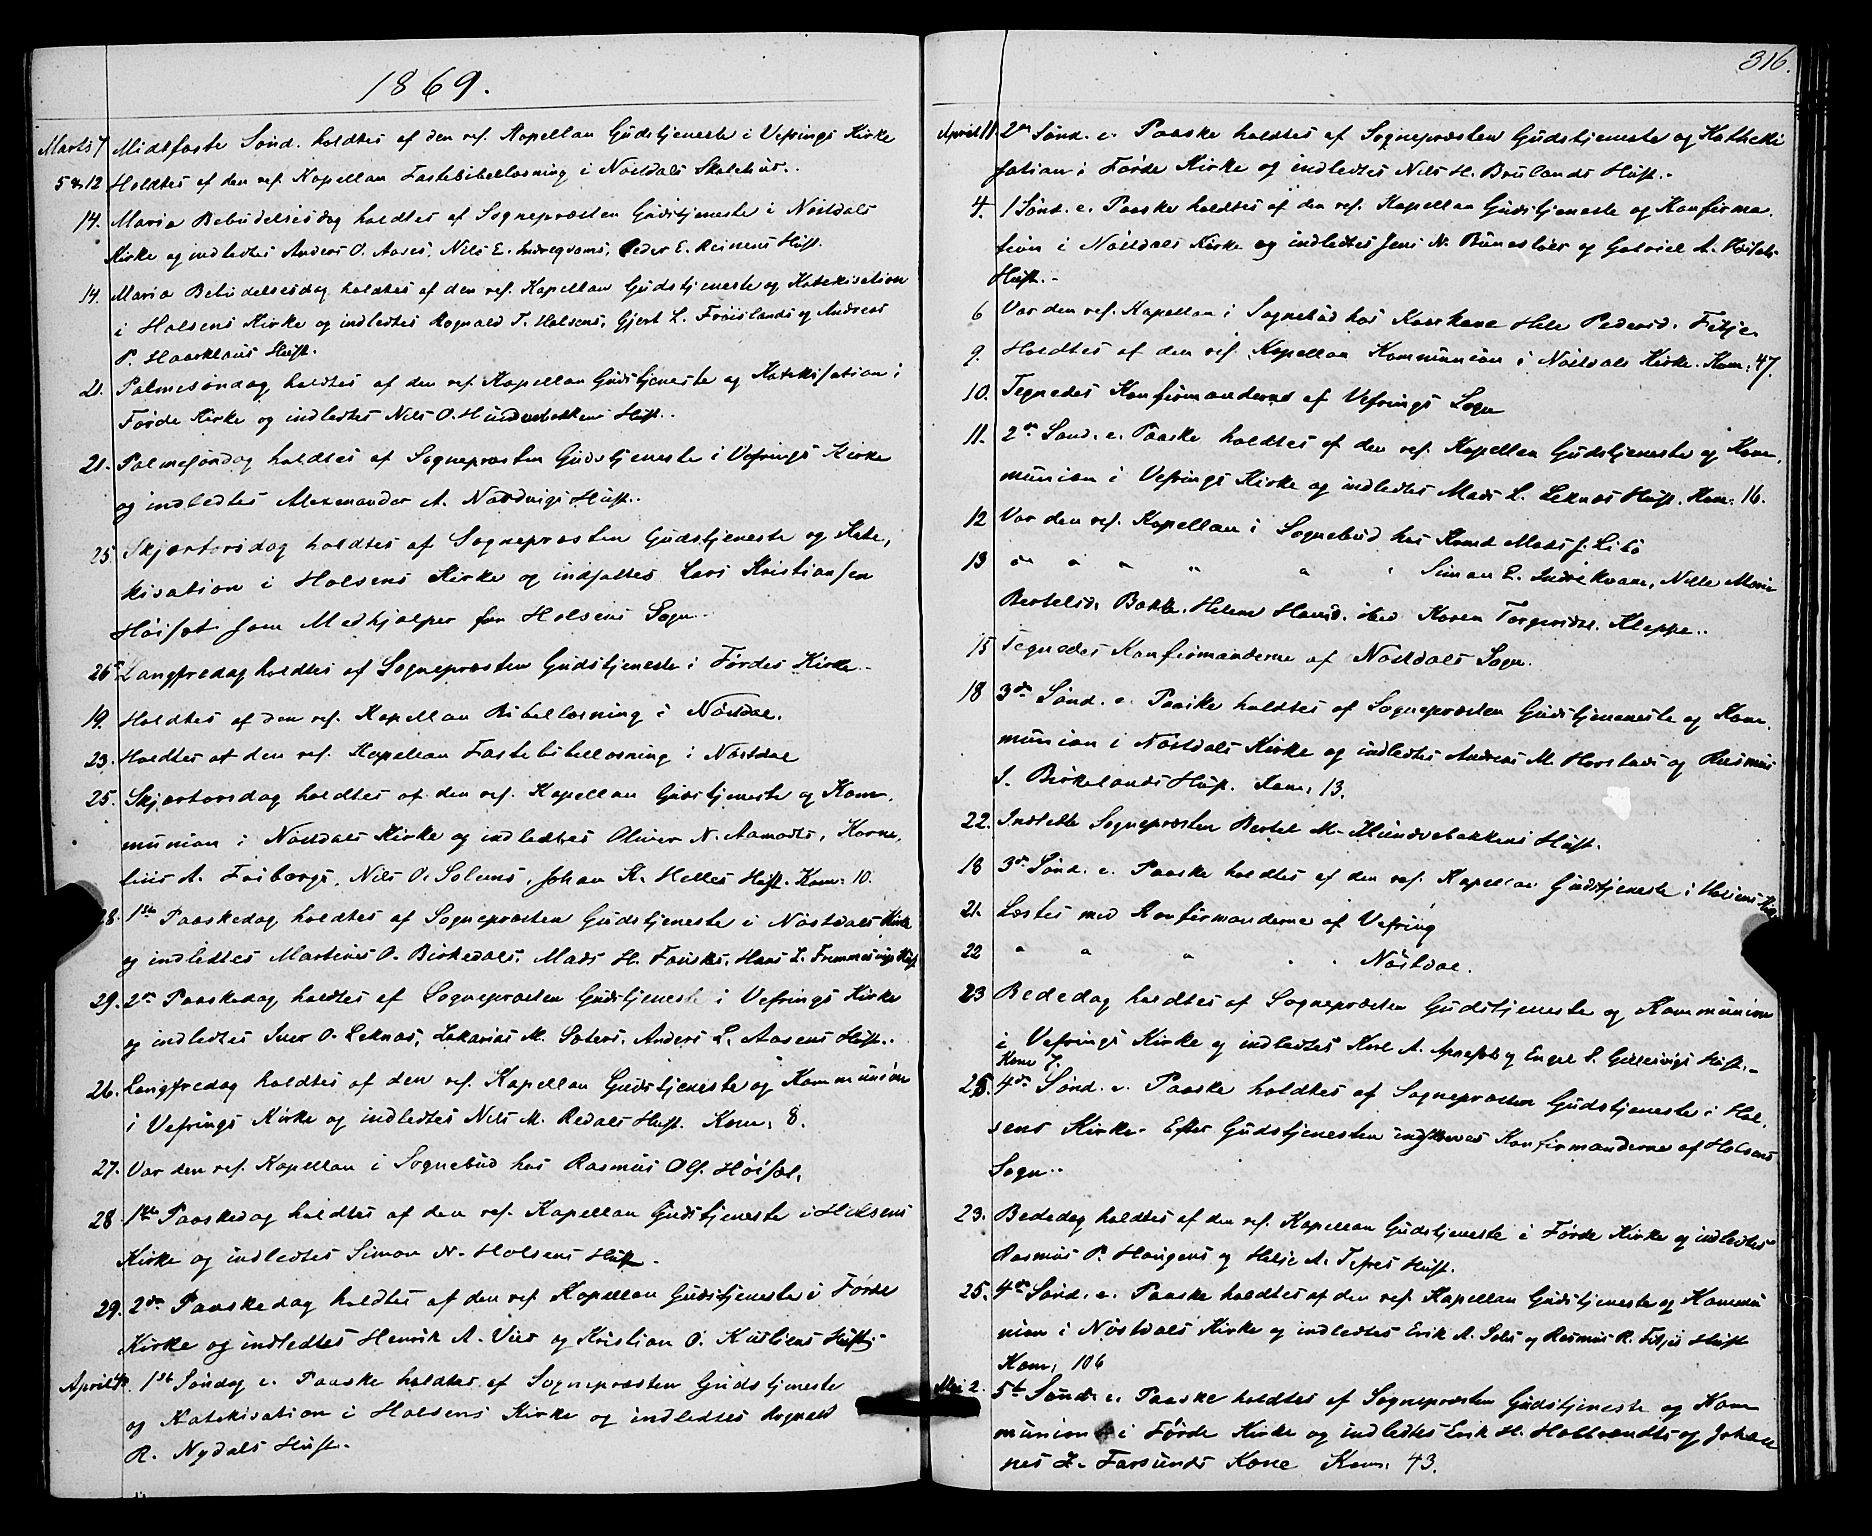 1869.
Marts 7 Midtfaste Sønd. holdtes af den res. Kapellan Gudstjeneste i Vefrings Kirke
5 & 12 Holdtes af den res. Kapellan Fastebibellæsning i Nøstdals Skolehus.
14. Maria Bebudelsesdag holdtes af Sognepræsten Gudstjeneste i Nøstdals
Kirke og indledtes Anders O. Aases, Nils E. Indregvams, Peder E. Reinens Hust.
14. Maria Bebudelsesdag holdtes af den res. Kapellan Gudstjeneste og Katekisation
i Holsens Kirke og indledtes Rognald T. Holsens, Gjert L. Frøislands og Andreas
P. Haarklaus Hust.
21. Palmesøndag holdtes af den res. Kapellan Gudstjeneste og Katekisation i
Førde Kirke og indledtes Nils O. Hundvebakkens Hust.
21. Palmesøndag holdtes af Sognepræsten Gudstjeneste i Vefrings Kirke
og indledtes Alexemander A. Nordvigs Hust.
25. Skjærtorsdag holdtes af Sognepræsten Gudstjeneste og Kate,
kisation i Holsens Kirke og indsattes Lars Kristiansen
Høisæt som Medhjælper for Holsens Sogn.
26 Langfredag holdtes af Sognepræsten Gudstjeneste i Førdes Kirke.
19. Holdtes af den res. Kapellan Bibellæsning i Nøstdal.
23. Holdtes af den res. Kapellan Fastebibellæsning i Nøstdal
25. Skjærtorsdag holdtes af den res. Kapellan Gudstjeneste og Kom,
munion i Nøstdals Kirke og indledtes Oliver N. Aamodts, Korne,
lius A. Friborgs, Nils O. Solems, Johan K. Helles Hust. Kom: 10.
28. 1ste Paaskedag holdtes af Sognepræsten Gudstjeneste i Nøstdals Kirke
og indledtes Martines O. Birkedals, Mads H. Fauskes, Hans L. Fremmesvigs Hust
29. 2den Paaskedag holdtes af Sognepræsten Gudstjeneste i Vefrings Kirke
og indledtes Iver O. Leknæs, Zakarias M. Sæters, Anders L. Aasens Hust.
26. Langfredag holdtes af den res. Kapellan Gudstjeneste og Kommunion
i Vefrings Kirke og indledtes Nils M. Redals Hust. Kom: 8.
27. Var den res. Kapellan i Sognebud hos Rasmus Ols. Høisæt,
28. 1ste Paaskedag holdtes af den res. Kapellan Gudstjeneste i Holsens
Kirke og indledtes Simon N. Holsens Hust.
29. 2den Paaskedag holdtes af den res. Kapellan Gudstjeneste i Førde
Kirke og indledtes Henrik A. Vies og Kristian O. Hust.
April 4 1ste Søndag e. Paaske holdtes af Sognepræsten Gudstjeneste
og Katekisation i Holsens Kirke og indledtes Rognald
R. Nydals Hust.
316.
April 11 2den Sønd. e. Paaske holdtes af Sognepræsten Gudstjeneste og Katheki
sation i Førde Kirke og indledtes Nils H. Brulands Hust.
4. 1 Sønd. e. Paaske holdtes af den res. Kapellan Gudstjeneste og Konfirma,
tion i Nøstdals Kirke og indledtes Jens N. og Gabriel A. Høisæts
Hust.
6 Var den res. Kapellan i Sognebud hos Pedersd. Fitje.
9. Holdtes af den res. Kapellan Kommunion i Nøstdals Kirke. Kom: 47.
10. Tegnedes Konfirmanderne af Vefrings Sogn
11. 2den Sønd. e. Paaske holdtes af den res. Kapellan Gudstjeneste og Kom,
munion i Vefrings Kirke og indledtes Mads L. Leknæs Hust. Kom: 16.
12 Var den res. Kapellan i Sognebud hos Mads J. Libø
13 " " " " " " Simon L. Indrekvam, Nille Marie
Bertelsd. Bakke, Helene Hansd. ibid Karen Torgersdtr. Kleppe.
15 Tegnedes Konfirmanderne af Nøstdals Sogn.
18 3die Sønd. e. Paaske holdtes af Sognepræsten Gudstjeneneste og Kom,
munion i Nøstdals Kirke og indledtes Andreas M. Horstads og Rasmus
S. Birkelands Hust. Kom: 13.
22. Indledte Sognepræsten Bertel M. Hundvebakkens Hust.
18 3die Sønd. e. Paaske holdtes af den res. Kapellan Gudstjeneste i Holsens Kirke
21. Læstes med Konfirmanderne af Vefring
22 " " " " " Nøstdal.
23 Bededag holdtes af Sognepræsten Gudstjeneste og Kommunion
i Vefrings Kirke og indledtes Karl A. og Engel S. Hust.
Kom 7.
25. 4de Sønd. e. Paaske holdtes af Sognepræsten Gudstjeneste i Hol,
sens Kirke. Efter Gudstjenesten indskreves Konfirmanderne af Holsens
Sogn.
23. Bededag holdtes af den res. Kapellan Gudstjeneste i Førde Kirke og indledtes
Rasmus P. Haugens og Helje A. Tefres Hust.
25. 4de Sønd. e. Paaske holdtes af den res. Kapellan Gudstjeneste og Kommu
nion i Nøstdals Kirke og indledtes Erik A. Sols og Rasmus R. Fitjes Hust
Kom: 106
Mai 2. 5te Sønd. e. Paaske holdtes af Sognepræsten Gudstjeneste og Kom
munion i Førde Kirke og indledtes Erik H. og Johan
nes Z. Farsunds Kone Kom: 43.